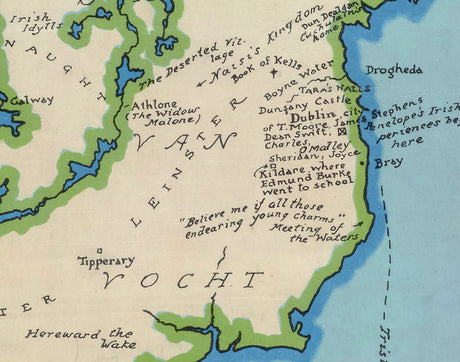 Irish
Idylls
NAUGHT
Galway
The Deserted Vil-
lage
Naisi's
Kingdom
Dun Dealgan
Cuchulain's
home
Book of Kells
Boyne Water
Drogheda
Athlone
(The Widow
Malone)
TARA'S HALLS
Dungany Castle
Dublin, city
of T. Moore, James
Stephens
Dean Swift,
Charles
O'Malley
Penelope's Irish
periences be
here
Sheridan, Joyce
Bray
Kildare where
Edmund Burke
went to school
LEINSTER
VAN
"Believe me if all those
endearing young charms"
Meeting of
the Waters
Tipperary
VOCHT
TER
Hereward the
Wake
Iris